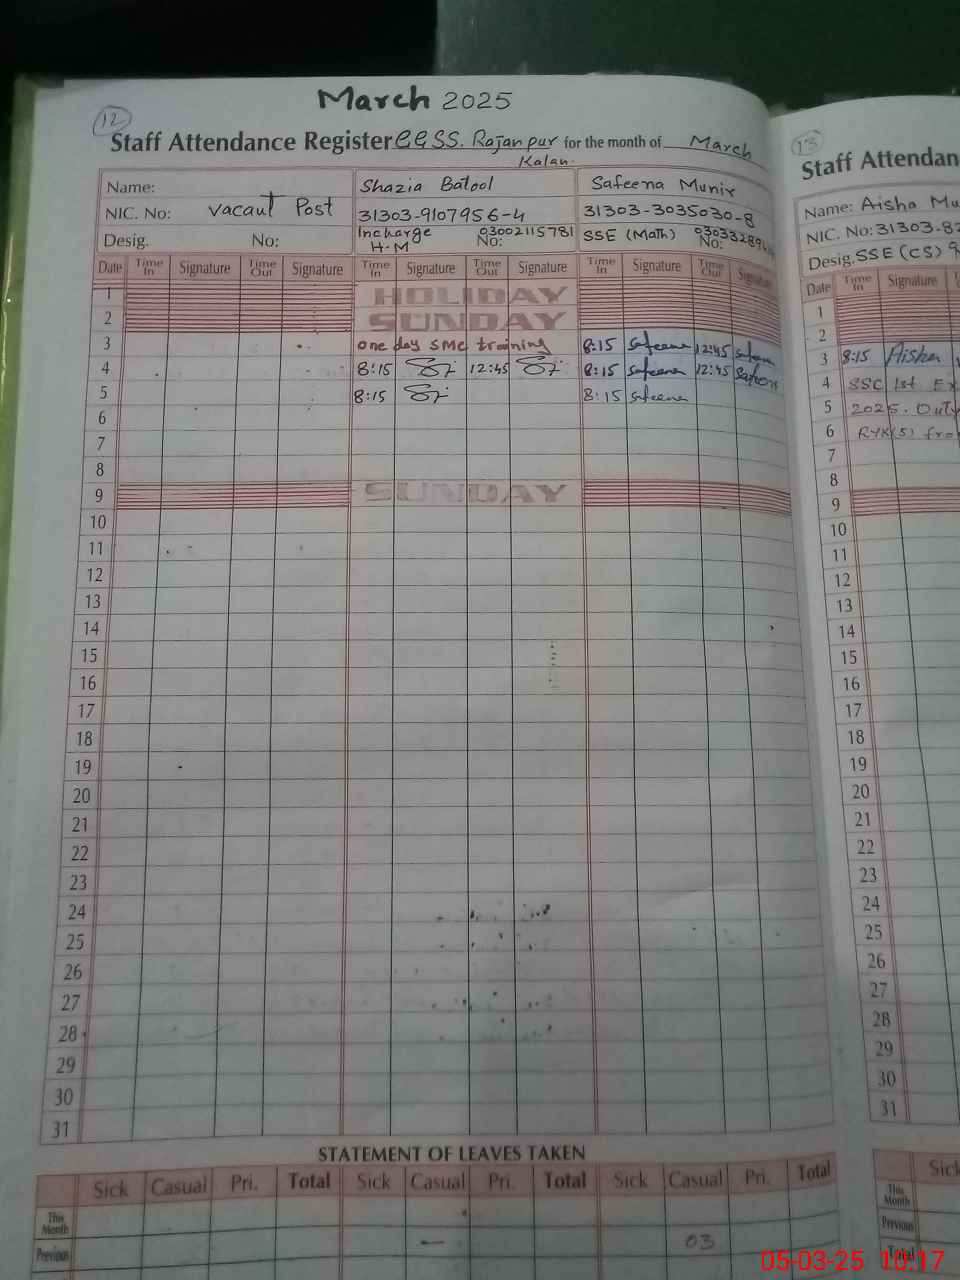 March 2025
12
Staff Attendance Register GGSS. Rajanpur for the month of March
Kalan.
Name: Shazia Batool Safeena Munir
NIC. No: Vacant Post 31303-9107956-4 31303-3035030-8
Desig. No: Incharge H.M No: 03002115781 SSE (Math) No:
Date Time In Signature Time Out Signature Time In Signature Time Out Signature Time In Signature Time Out Signature
1 HOLIDAY
2 SUNDAY
3 one day SMC training 8:15 Safeena 12:45 Safeena
4 8:15 12:45 8:15 Safeena 12:45 Safeena
5 8:15 8:15 Safeena
6
7
8
9 SUNDAY
10
11
12
13
14
15
16
17
18
19
20
21
22
23
24
25
26
27
28
29
30
31
STATEMENT OF LEAVES TAKEN
Sick Casual Pri. Total Sick Casual Pri. Total Sick Casual Pri. Total
This Month
Previous — 03
13
Staff Attendan
Name: Aisha Mu
NIC. No: 31303-82
Desig. SSE (CS)
Date Time In Signature
1
2
3 8:15 Aisha
4 SSC 1st Ex
5 2025. Duty
6 RYK(S) fro
7
8
9
10
11
12
13
14
15
16
17
18
19
20
21
22
23
24
25
26
27
28
29
30
31
Sick
This Month
Previous
Total
05-03-25 10:17